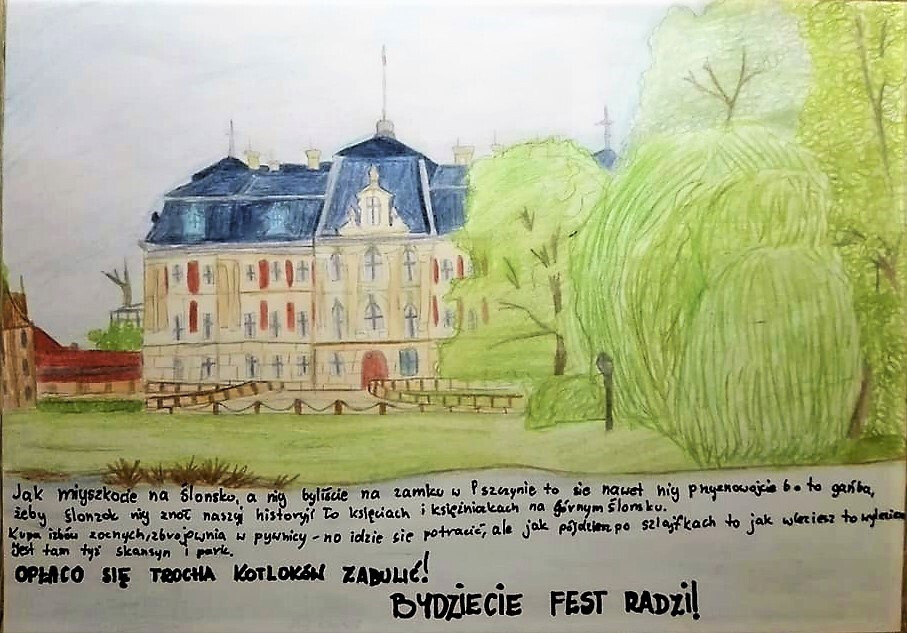 Jak miyszkocie na Ślonsku, a niy byliście na zamku w Pszczynie to sie nawet niy przyznowojcie bo to gańba,
żeby Ślonzok niy znoł naszyj historyji to księciach i księżniakach na Górnym Ślonsku.
Kupa izbów zocnych, zbrojownia w pywnicy - no idzie sie potracić, ale jak pójdziem po szlajfkach to jak wleziesz to wyleziesz
Jest tam tyż skansyn i park.
OPŁACO SIĘ TROCHA KOTLOKÓW ZABULIĆ!
BYDZIECIE FEST RADZI!